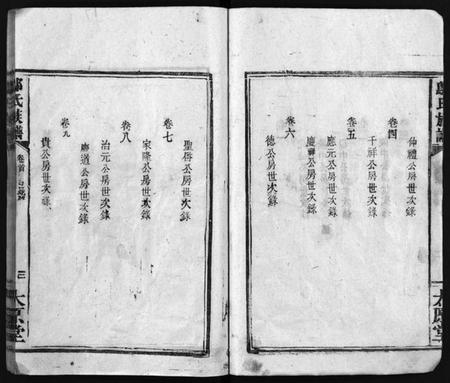 氏族譜
太原堂
仲禮公房世次錄
卷四
千祥公房世次錄
卷五
應元公房世次錄
慶祥公房世次錄
卷六
德公房世次錄
卷七
聖啓公房世次錄
宗隆公房世次錄
卷八
治元公房世次錄
廊道公房世次錄
卷九
貴公房世次錄
氏族譜
卷首
三
太原堂